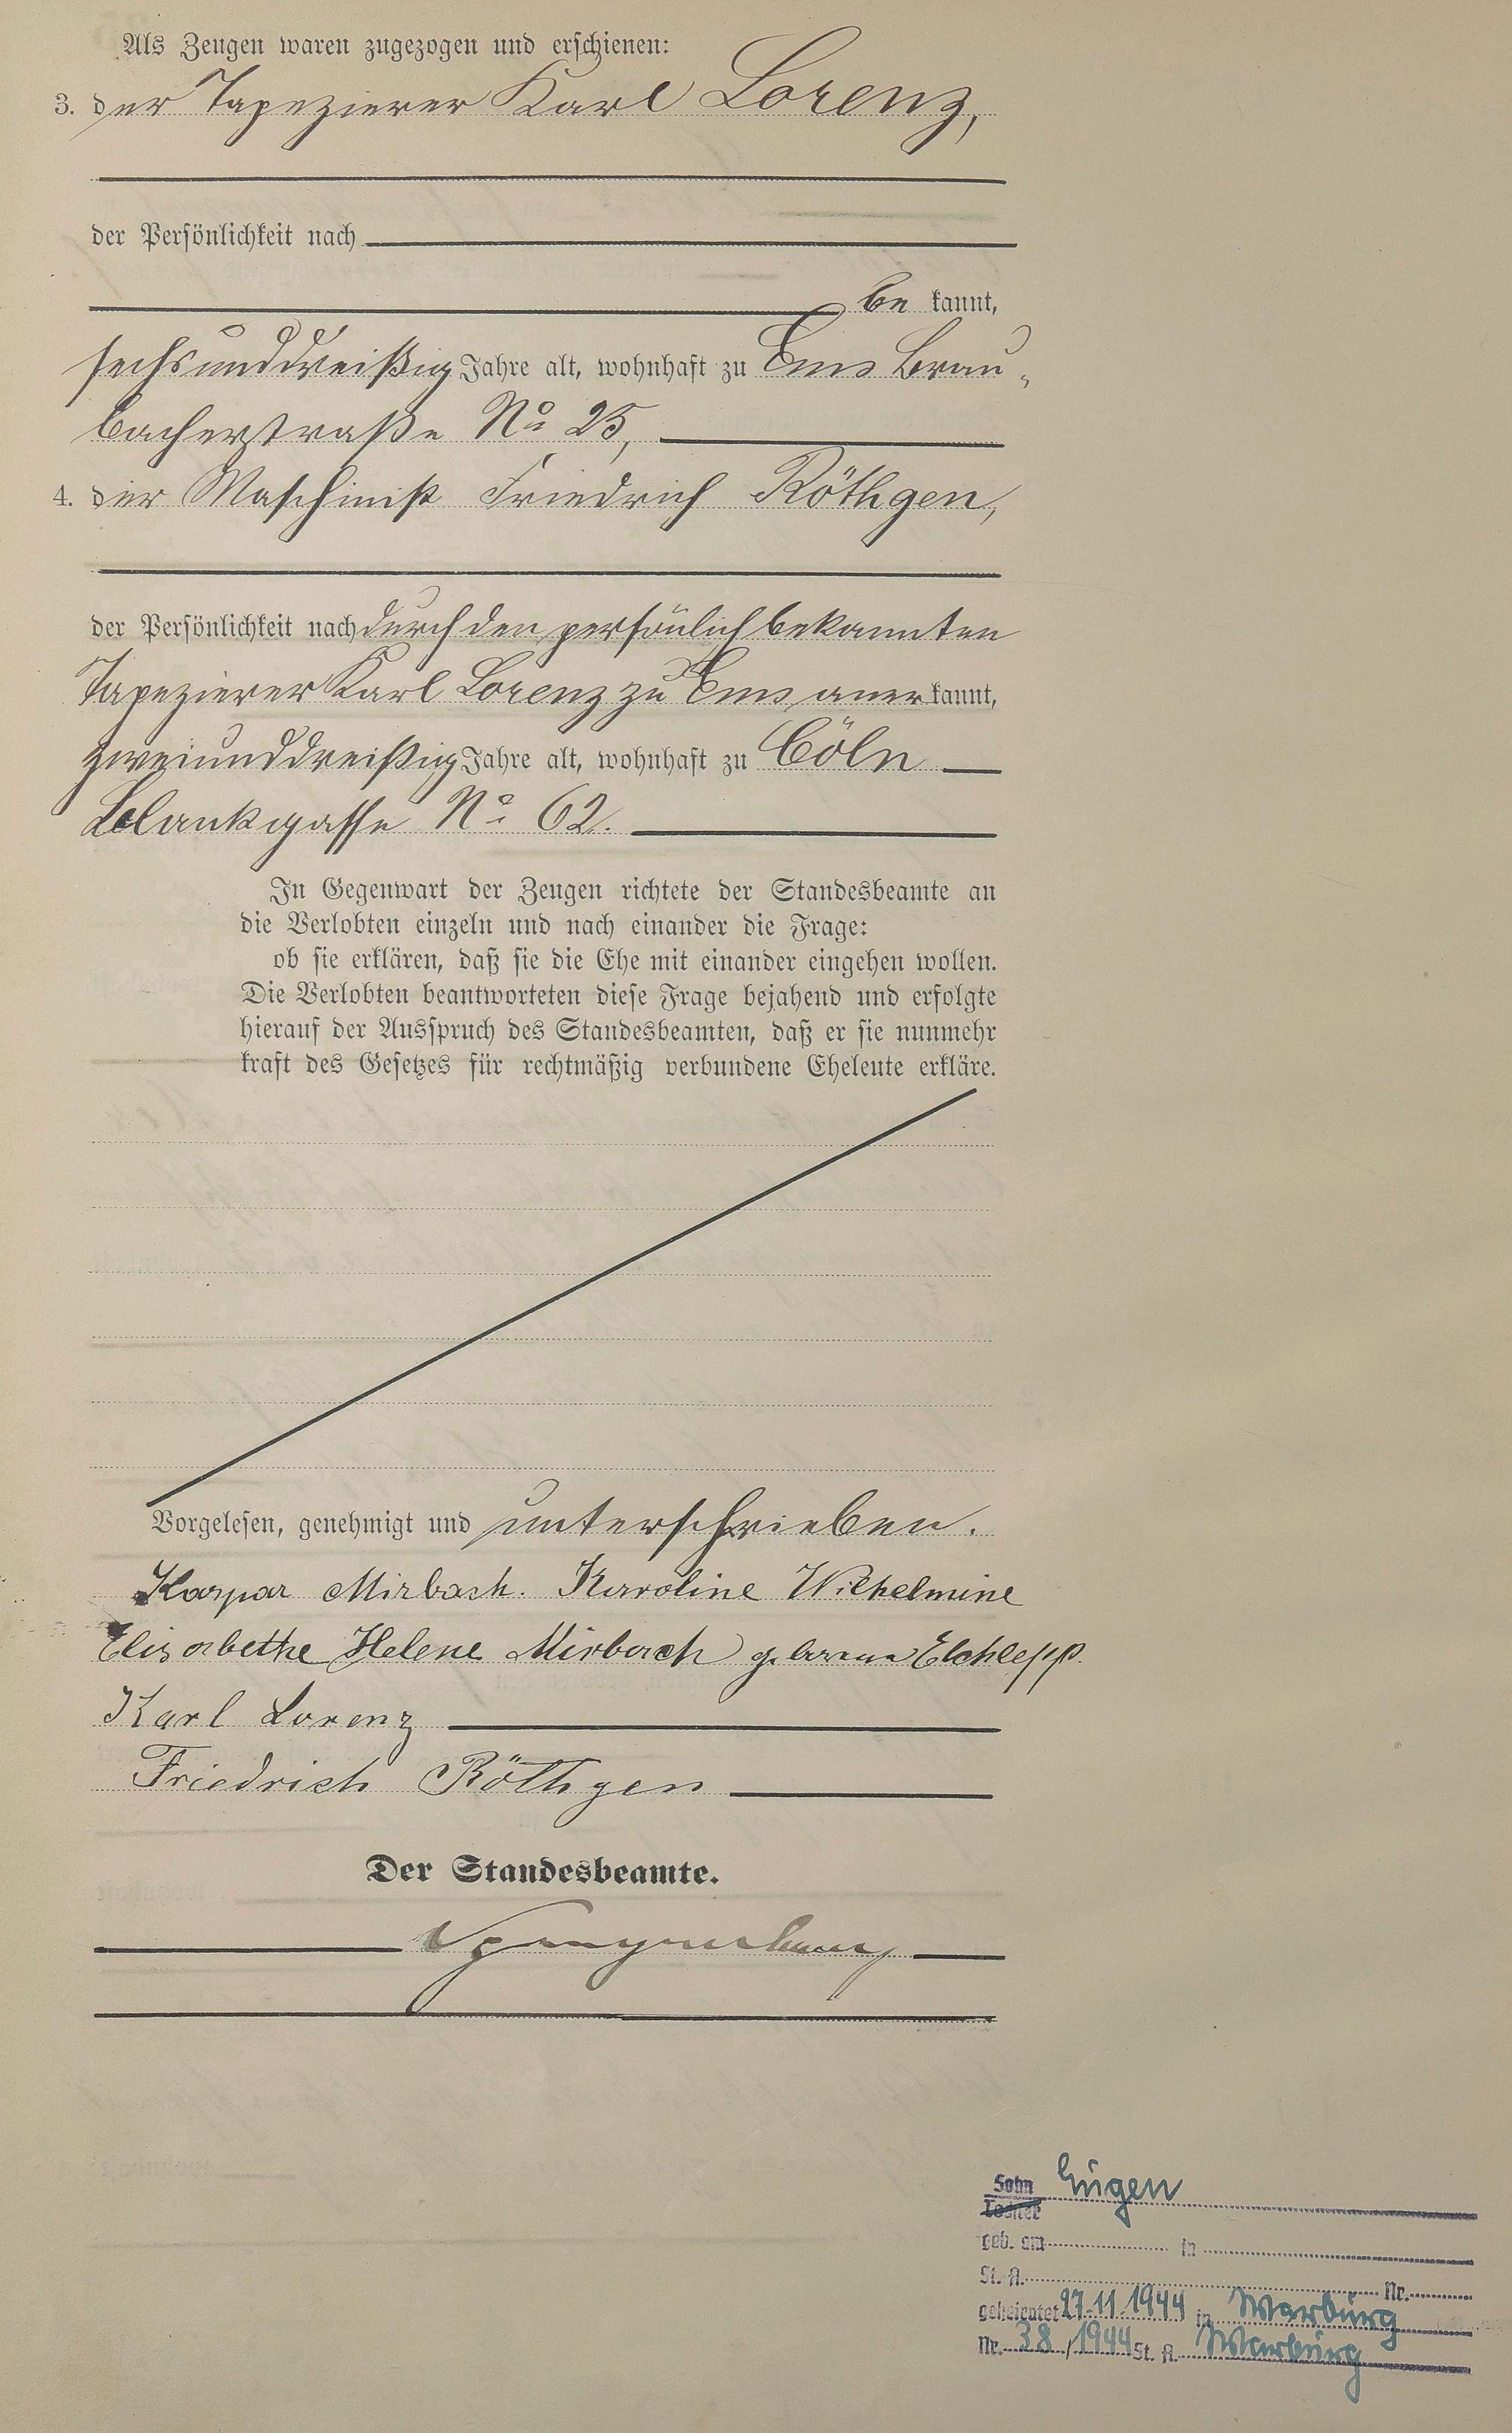 Als Zeugen waren zugezogen und erschienen:
3. der Tapezierer Karl Lorenz,
der Persönlichkeit nach
be kannt,
sechsunddreißig Jahre alt, wohnhaft zu Ems Brau„
bacherstraße No 25,
4. der Maschinist Friedrich Röthgen,
der Persönlichkeit nach durch den persönlich bekannten
Tapezierer Karl Lorenz zu Ems aner kannt,
zweiunddreißig Jahre alt, wohnhaft zu Cöln
No 62.
In Gegenwart der Zeugen richtete der Standesbeamte an
die Verlobten einzeln und nach einander die Frage:
ob sie erklären, daß sie die Ehe mit einander eingehen wollen.
Die Verlobten beantworteten diese Frage bejahend und erfolgte
hierauf der Ausspruch des Standesbeamten, daß er sie nunmehr
kraft des Gesetzes für rechtmäßig verbundene Eheleute erkläre.
Vorgelesen, genehmigt und unterschrieben.
Kaspar Mirbach. Karoline Wilhelmine
Elisabethe Helene Mirbach geborene
Karl Lorenz
Friedrich Röthgen
Der Standesbeamte.
Sohn Eugen
Tochter
geb. am in
St. A. Nr.
geheiratet 27.11.1944 in Warburg
Nr. 38/1944 St. A. Warburg